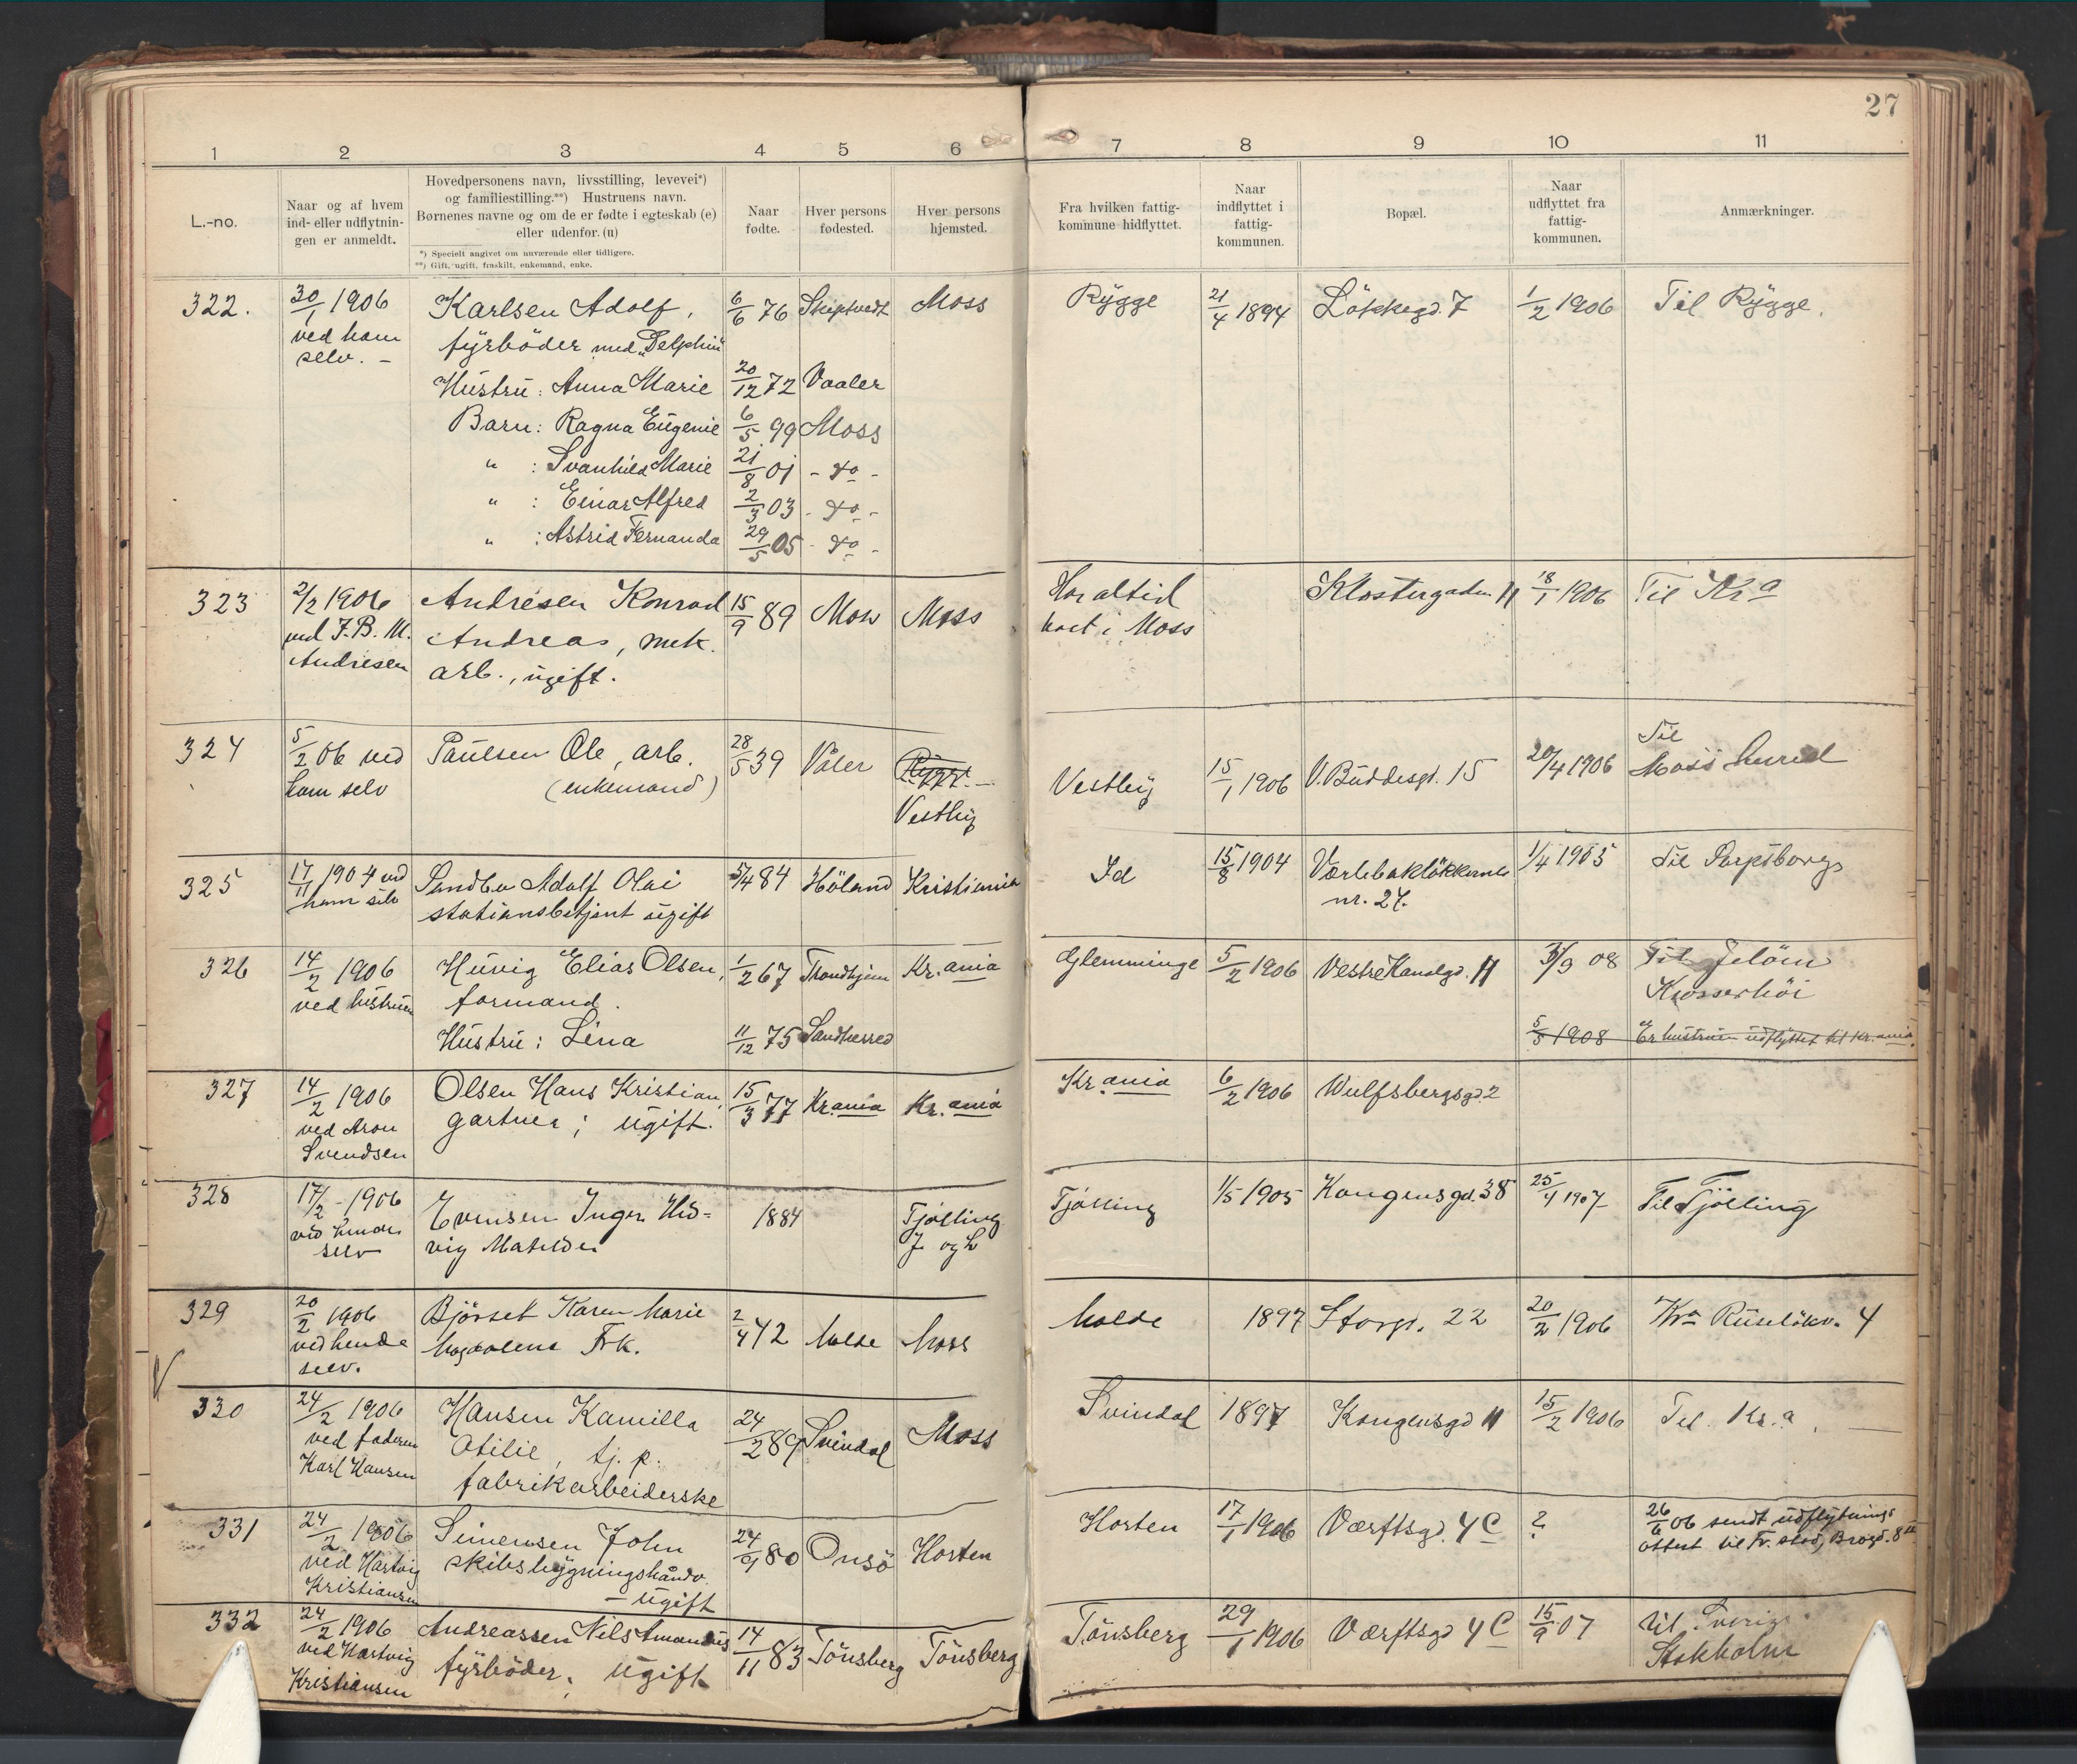 27
1
2
3
4
5
6
7
8
9
10
11
L.-no.
Naar og af hvem
ind- eller udflytnin-
gen er anmeldt.
Hovedpersonens navn, livsstilling, levevei*)
og familiestilling.**) Hustruens navn.
Børnenes navne og om de er fødte i egteskab (e)
eller udenfor. (u)
*) Specielt angivet om nuværende eller tidligere.
**) Gift, ugift, fraskilt, enkemand, enke.
Naar
fødte.
Hver persons
fødested.
Hver persons
hjemsted.
Fra hvilken fattig-
kommune hidflyttet.
Naar
indflyttet i
fattig-
kommunen.
Bopæl.
Naar
udflyttet fra
fattig-
kommunen.
Anmærkninger.
322. 30/1 1906 Karlsen Adolf, 6/6 76 Skiptvedt Moss Rygge 21/4 1894 Løkkegd. 7 1/2 1906 Til Rygge.
ved ham fyrbøder med "Delphin"
selv. -
Hustru: Anna Marie 20/12 72 Vaaler
Barn: Ragna Eugenie 6/5 99 Moss
" : Svanhild Marie 21/8 01 - do -
" : Einar Alfred 2/3 03 - do -
" : Astrid Fernanda 29/5 05 - do -
323 2/2 1906 Andresen Konrad 15/9 89 Moss Moss Har altid Klostergaden 11 18/1 1906 Til Kra
ved F. B. M. Andreas, mek. boet i Moss
Andresen arb., ugift.
324 5/2 06 ved Paulsen Ole, arb. 28/5 39 Våler Rygge. Vestby 15/1 1906 V. Buddesgd. 15 20/4 1906 Til
ham selv (enkemand) Vestby Moss
325 17/11 1904 ved Sandbu Adolf Olai 5/4 84 Høland Kristiania Id 15/8 1904 Værlebakløkkerne 1/4 1905 Til Sarpsborg
ham selv stationsbetjent ugift nr. 27.
326 14/2 1906 Huvig Elias Olsen, 1/2 67 Trondhjem Kr.ania Glemminge 5/2 1906 Vestre Kanalgd. 11 3/9 08 Til Jeløen
ved hustruen formand. Krosserhöi
Hustru: Lina 11/12 75 Sandherred 5/5 1908 Er hustruen udflyttet til Kr.ania.
327 14/2 1906 Olsen Hans Kristian, 15/3 77 Kr.ania Kr.ania Kr.ania 6/2 1906 Wulfsbergsgd. 2
ved Aron gartner; ugift.
Svendsen
328 17/2 - 1906 Evensen Inger Hed= 1884 Tjølling Tjølling 1/5 1905 Kongensgd. 38 25/4 1907 Til Tjølling
ved hende vig Matilde
selv
329 20/2 1906 Bjørset Karen Marie 2/4 42 Molde Moss Molde 1897 Storgd. 22 20/2 1906 Kra Ruseløkv. 4
ved hende Magdalena Frk.
selv.
330 24/2 1906 Hansen Kamilla 24/2 89 Svindal Moss Svindal 1897 Kongensgd 11 15/2 1906 Til Kr.a
ved faderen Otilie, tj. p.
Karl Hansen fabrikarbeiderske
331 24/2 1906 Simensen John 24/9 80 Onsø Horten Horten 17/1 1906 Værftsgd. 4 C ? 26/6 06 sendt udflytnings
ved Hartvig skibsbygningshåndv. attest til Fr.stad, Brogd. 8
Kristiansen - ugift
332 24/2 1906 Andreassen Nils Amandus 14/11 83 Tønsberg Tønsberg Tønsberg 29/1 1906 Værftsgd 4 C 15/9 07 til Sverige
ved Hartvig fyrbøder, ugift Stokholm
Kristiansen